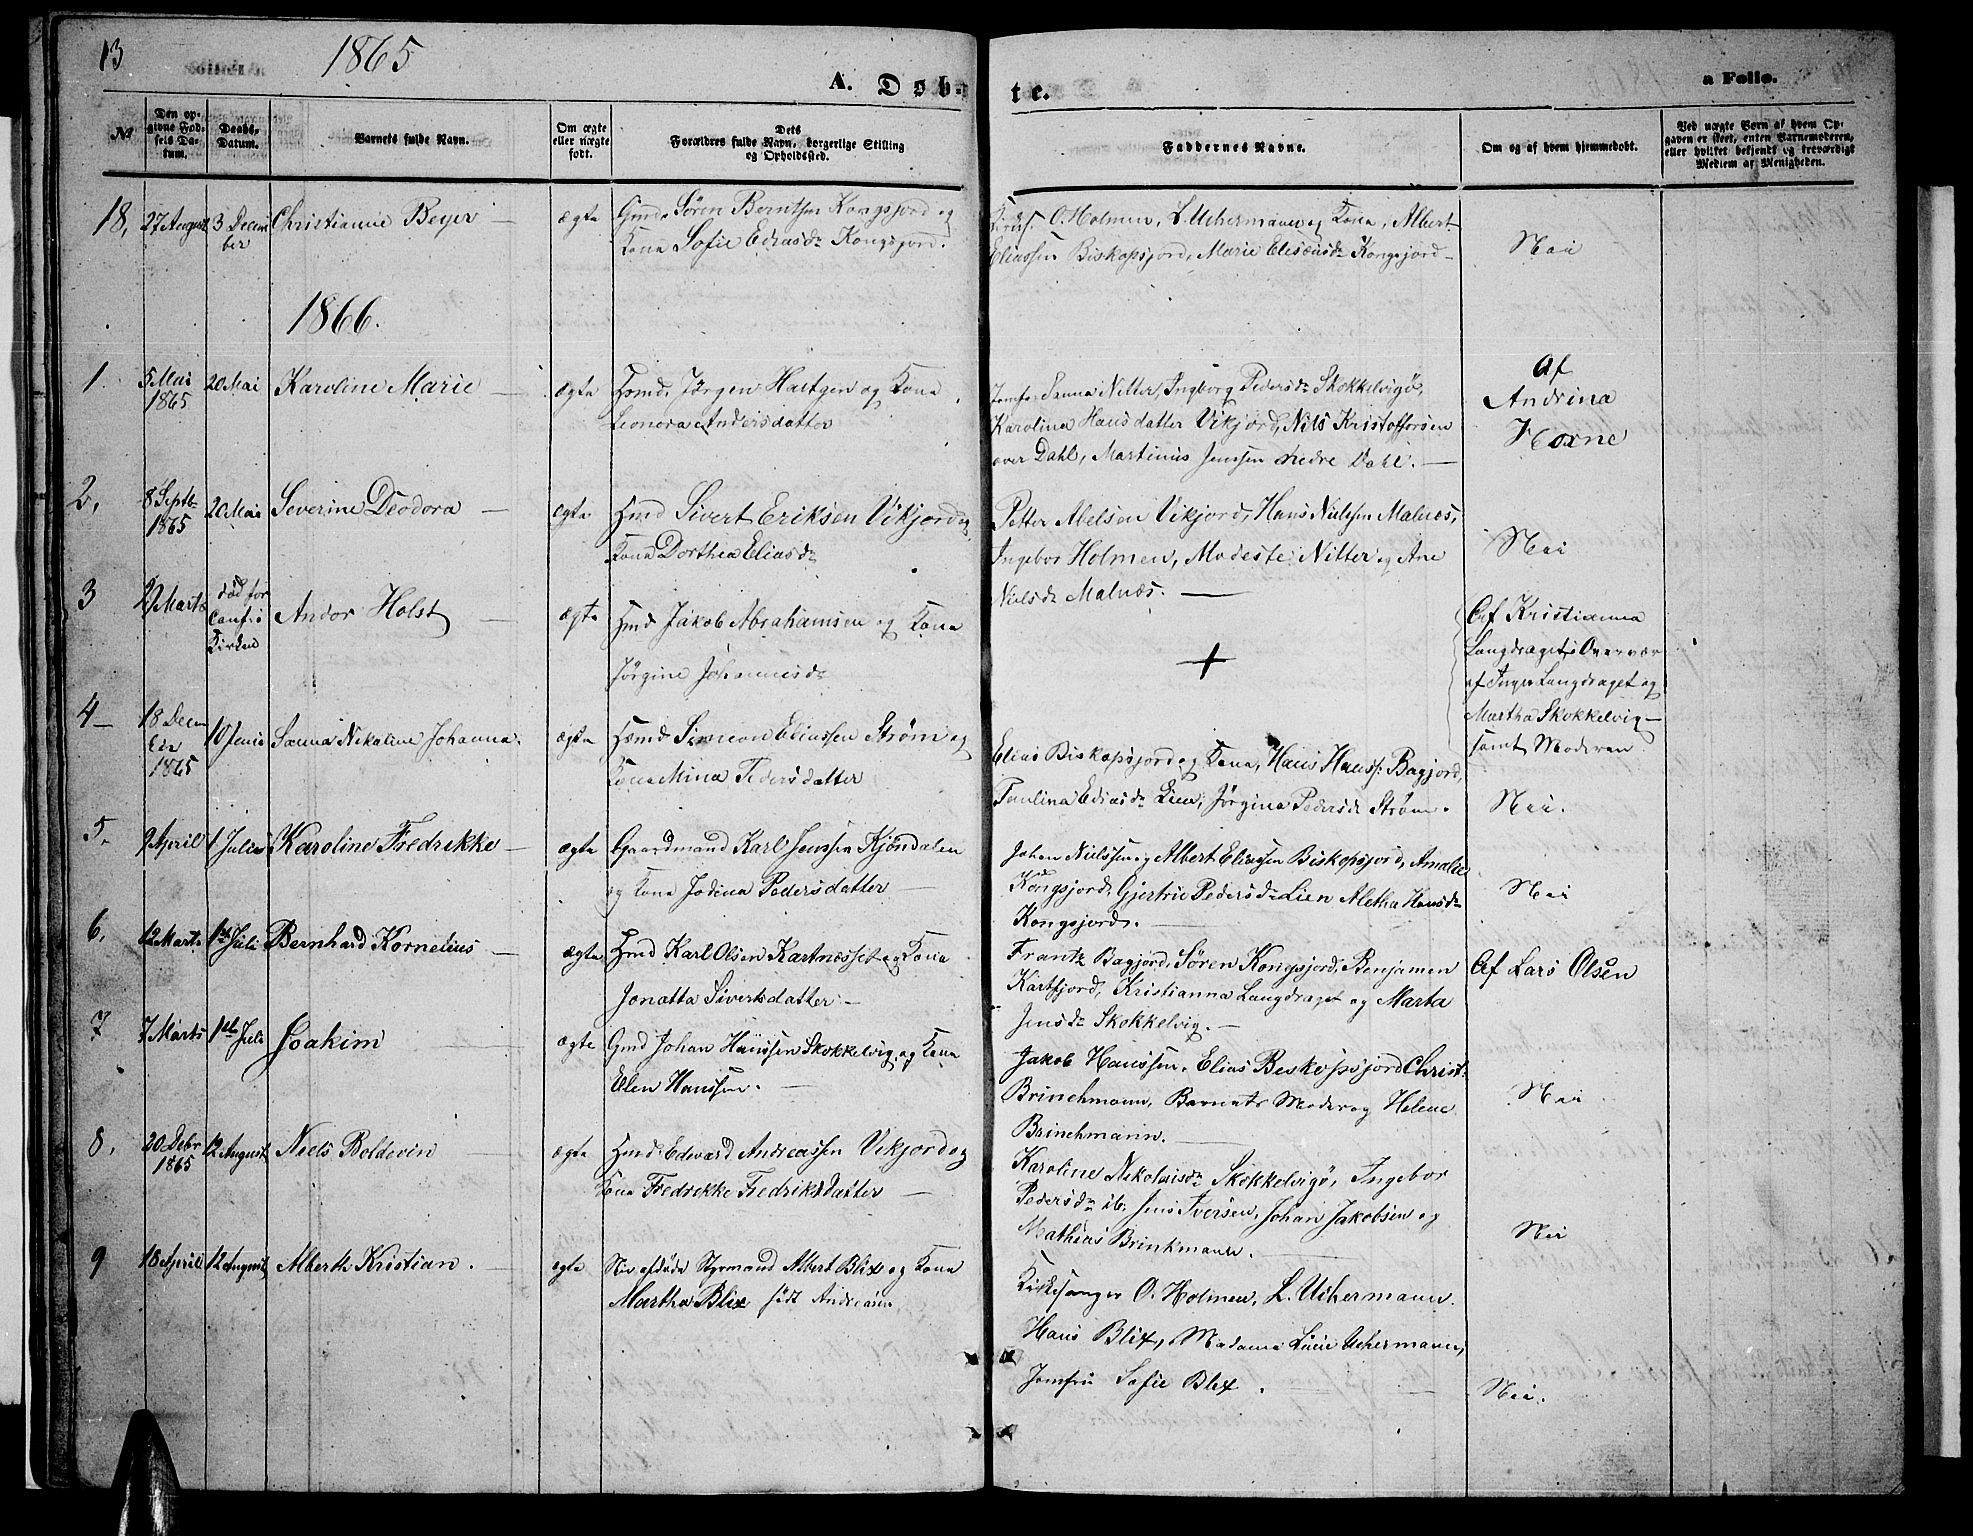 13
1865
A. Døb-
te.
a Folio.
No
Den op-
givne Fød-
sels Da-
tum.
Daabs-
Datum.
Barnets fulde Navn.
Om ægte
eller uægte
født.
Dets
Forældres fulde Navn, borgerlige Stilling
og Opholdssted.
Faddernes Navne.
Om og af hvem hjemmedøbt.
Ved uægte Børn af hvem Op-
gaven er skeet, enten Barnemoderen,
eller hvilket bekjendt og troværdigt
Medlem af Menigheden.
18, 27 August 3 Decem Christianne Beyer — ægte Gmd. Søren Berntsen Kongsjord og
ber
Kona Sofie Ediasdr Kongsjord.
O. Holmen, L. Uchermann og Kona, Albert
Eliassen Biskopsjord, Marie Eliseusdr Kongsjord —
Nei
1866.
1. 5 Mai 20 Mai Karoline Marie — ægte Hsmd. Jørgen Hartgen og Kona
1865
Leonora Andersdatter
Jomfr. Sanna Nitter, Ingborg Pedersdr Skokkelvigø,
Karolina Hansdatter Vikjord, Nils Kristoffersen
øver Dahl, Martinus Jenssen nedre Dahl. —
Af
Andrina
Horne
2, 8 Septb 20 Mai Severine Deodora — ægte Hmd Sivert Eriksen Vikjord og
1865
Kona Dorthea Eliasdr
Petter Abelsen Vikjord, Hans Nielssen Malnæs,
Ingebor Holmen, Modeste Nitter og Ane
Nielsdr Malnæs. —
Nei
3 Marts død før
Kirken
Andor Holst — ægte Hmd Jakob Abrahamsen og Kona
Jørgine Johannesdr
+
Af Kristianna
Langdraget i Overvær
af Inger Langdraget og
Martha Skokkelvig —
samt Moderen
4 — 18 Decem 10 Juni Sanna Nikoline Johanna. ægte Hsmd. Simeon Eliassen Strøm og
ber
1865
Kona Mina Pedersdatter
Elias Biskopsjord og Kona, Hans Hanss: Bagjord,
Paulina Ediasdr Lien, Jørgina Pedersdr Strøm.
Nei.
5. 9 April 1 Juli Karoline Fredrikke — ægte Gaardmand Karl Jenssen Kjøndalen
og Kona Jodina Pedersdatter —
Johan Nielssen og Albert Eliassen Biskopsjord, Amalie
Kongsjord, Gjertru Pedersdr Lien Aletha Hansdr
Kongsjord. —
Nei
6. 12 Marts 1st Juli Bernhard Kornelius — ægte Hmd Karl Olsen Kartnæsset og Kona
Jonatta Sivertsdatter —
Frantz Bagjord, Søren Kongsjord, Benjamen
Kartfjord, Kristianna Langdraget og Marta
Jensdr Skokkelvig. —
Af Lars Olsen
7 7 Marts 1ste Juli Joakim — ægte Gmd Johan Hanssen Skokkelvig og Kona
Elen Hanssen. —
Jakob Hanssen, Elias Beskopsjord Christ.
Brinchmann, Barnets Moder og Helene
Brinchmann. —
Nei
8. 20 Debr 12 August Neels Boldevin — ægte Hmd. Edevard Andreassen Vikjord og
1865
Kona Fredrekke Fredriksdatter —
Karoline Nikolaisdr Skokkelvigø, Ingebor
Pedersdr ib. Jens Iversen, Johan Jakobsen og
Mathias Brinkmann. —
Nei
9 18 April 12 August Alberth Kristian. — ægte Nu afdøde Styrmand Albert Blix og Kona
Martha Blix født Andreasen
Kirkesanger O. Holmen, L. Uchermann.
Hans Blix, Madame Lucie Uchermann,
Jomfru Sofie Blix.
Nei.
1866.